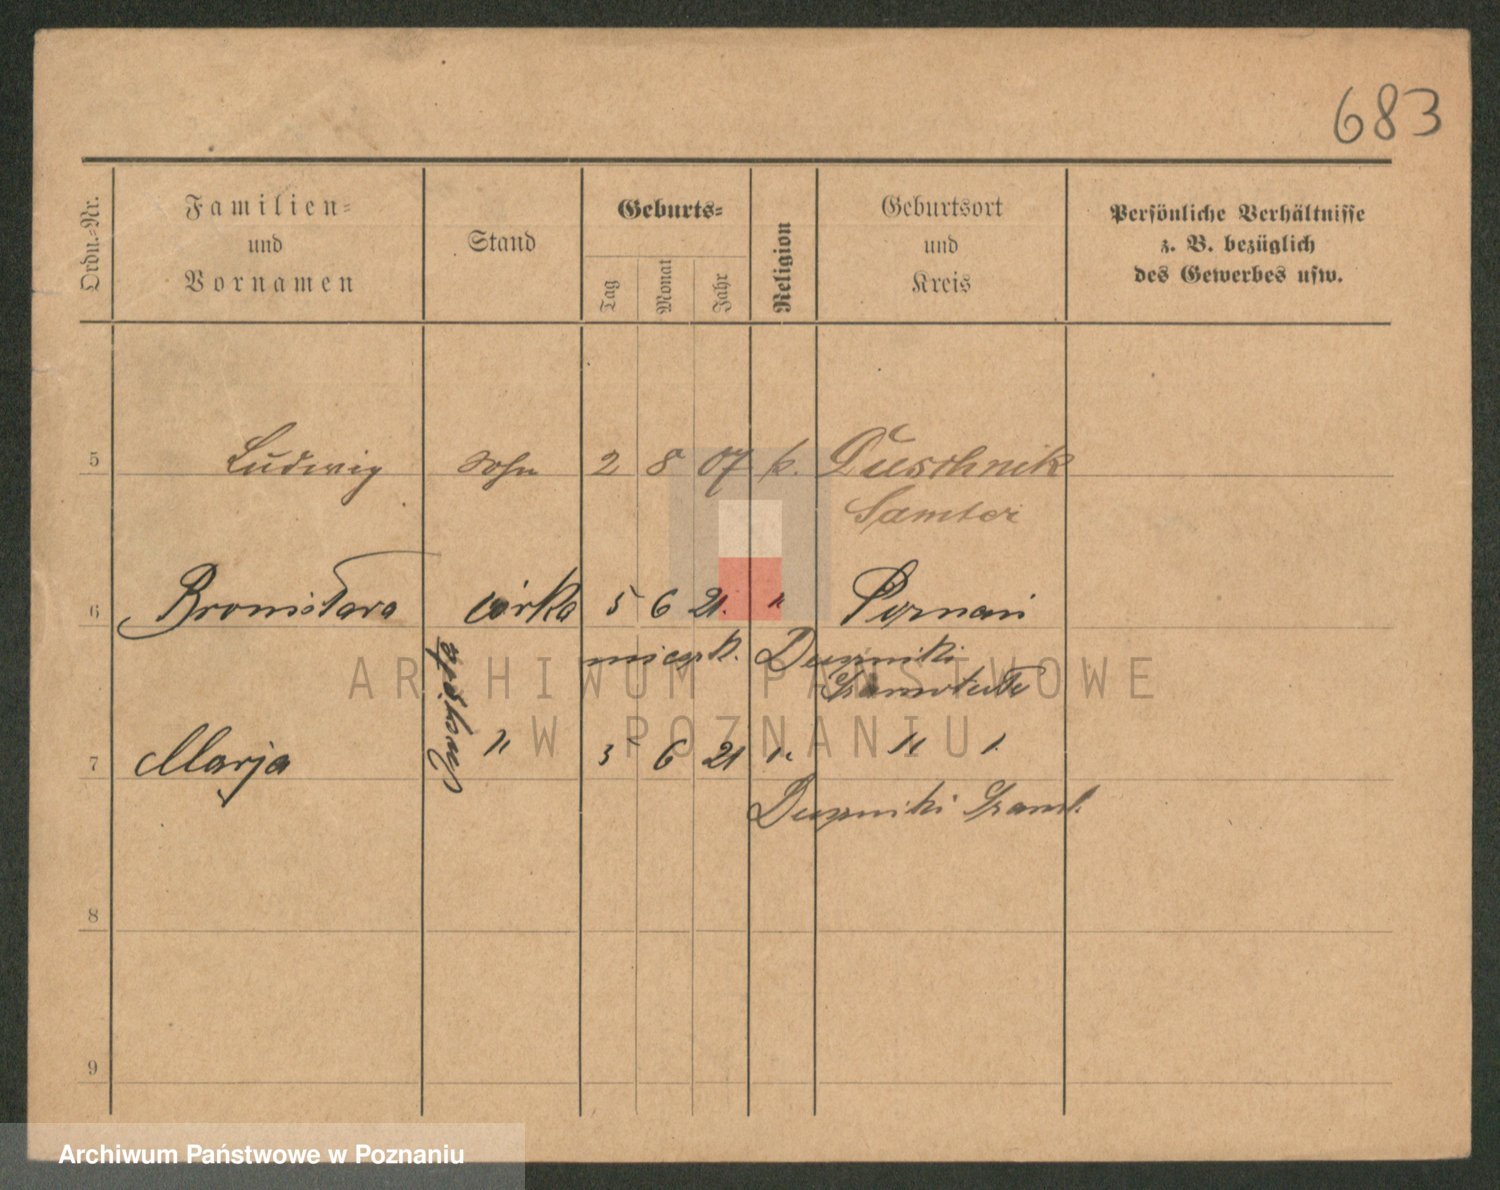 683
Ordn.-Nr.
Familien-
und
Vornamen
Stand
Geburts-
Tag
Monat
Jahr
Religion
Geburtsort
und
Kreis
Persönliche Verhältnisse
z. B. bezüglich
des Gewerbes usw.
5 Ludwig Sohn 2 8 07 k. Duschnik
Samter
6 Bronisława córka 5 6 21. " Poznań
mieszk. Duszniki
7 Marja " 5 6 21 " " "
Duszniki Szamot.
8
9
ARCHIWUM PAŃSTWOWE
W POZNANIU
Archiwum Państwowe w Poznaniu